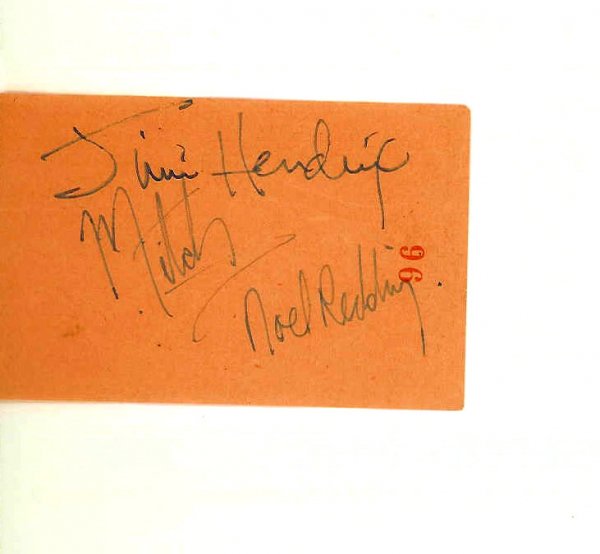 Jimi Hendrix
Mitch
Noel Redding
96